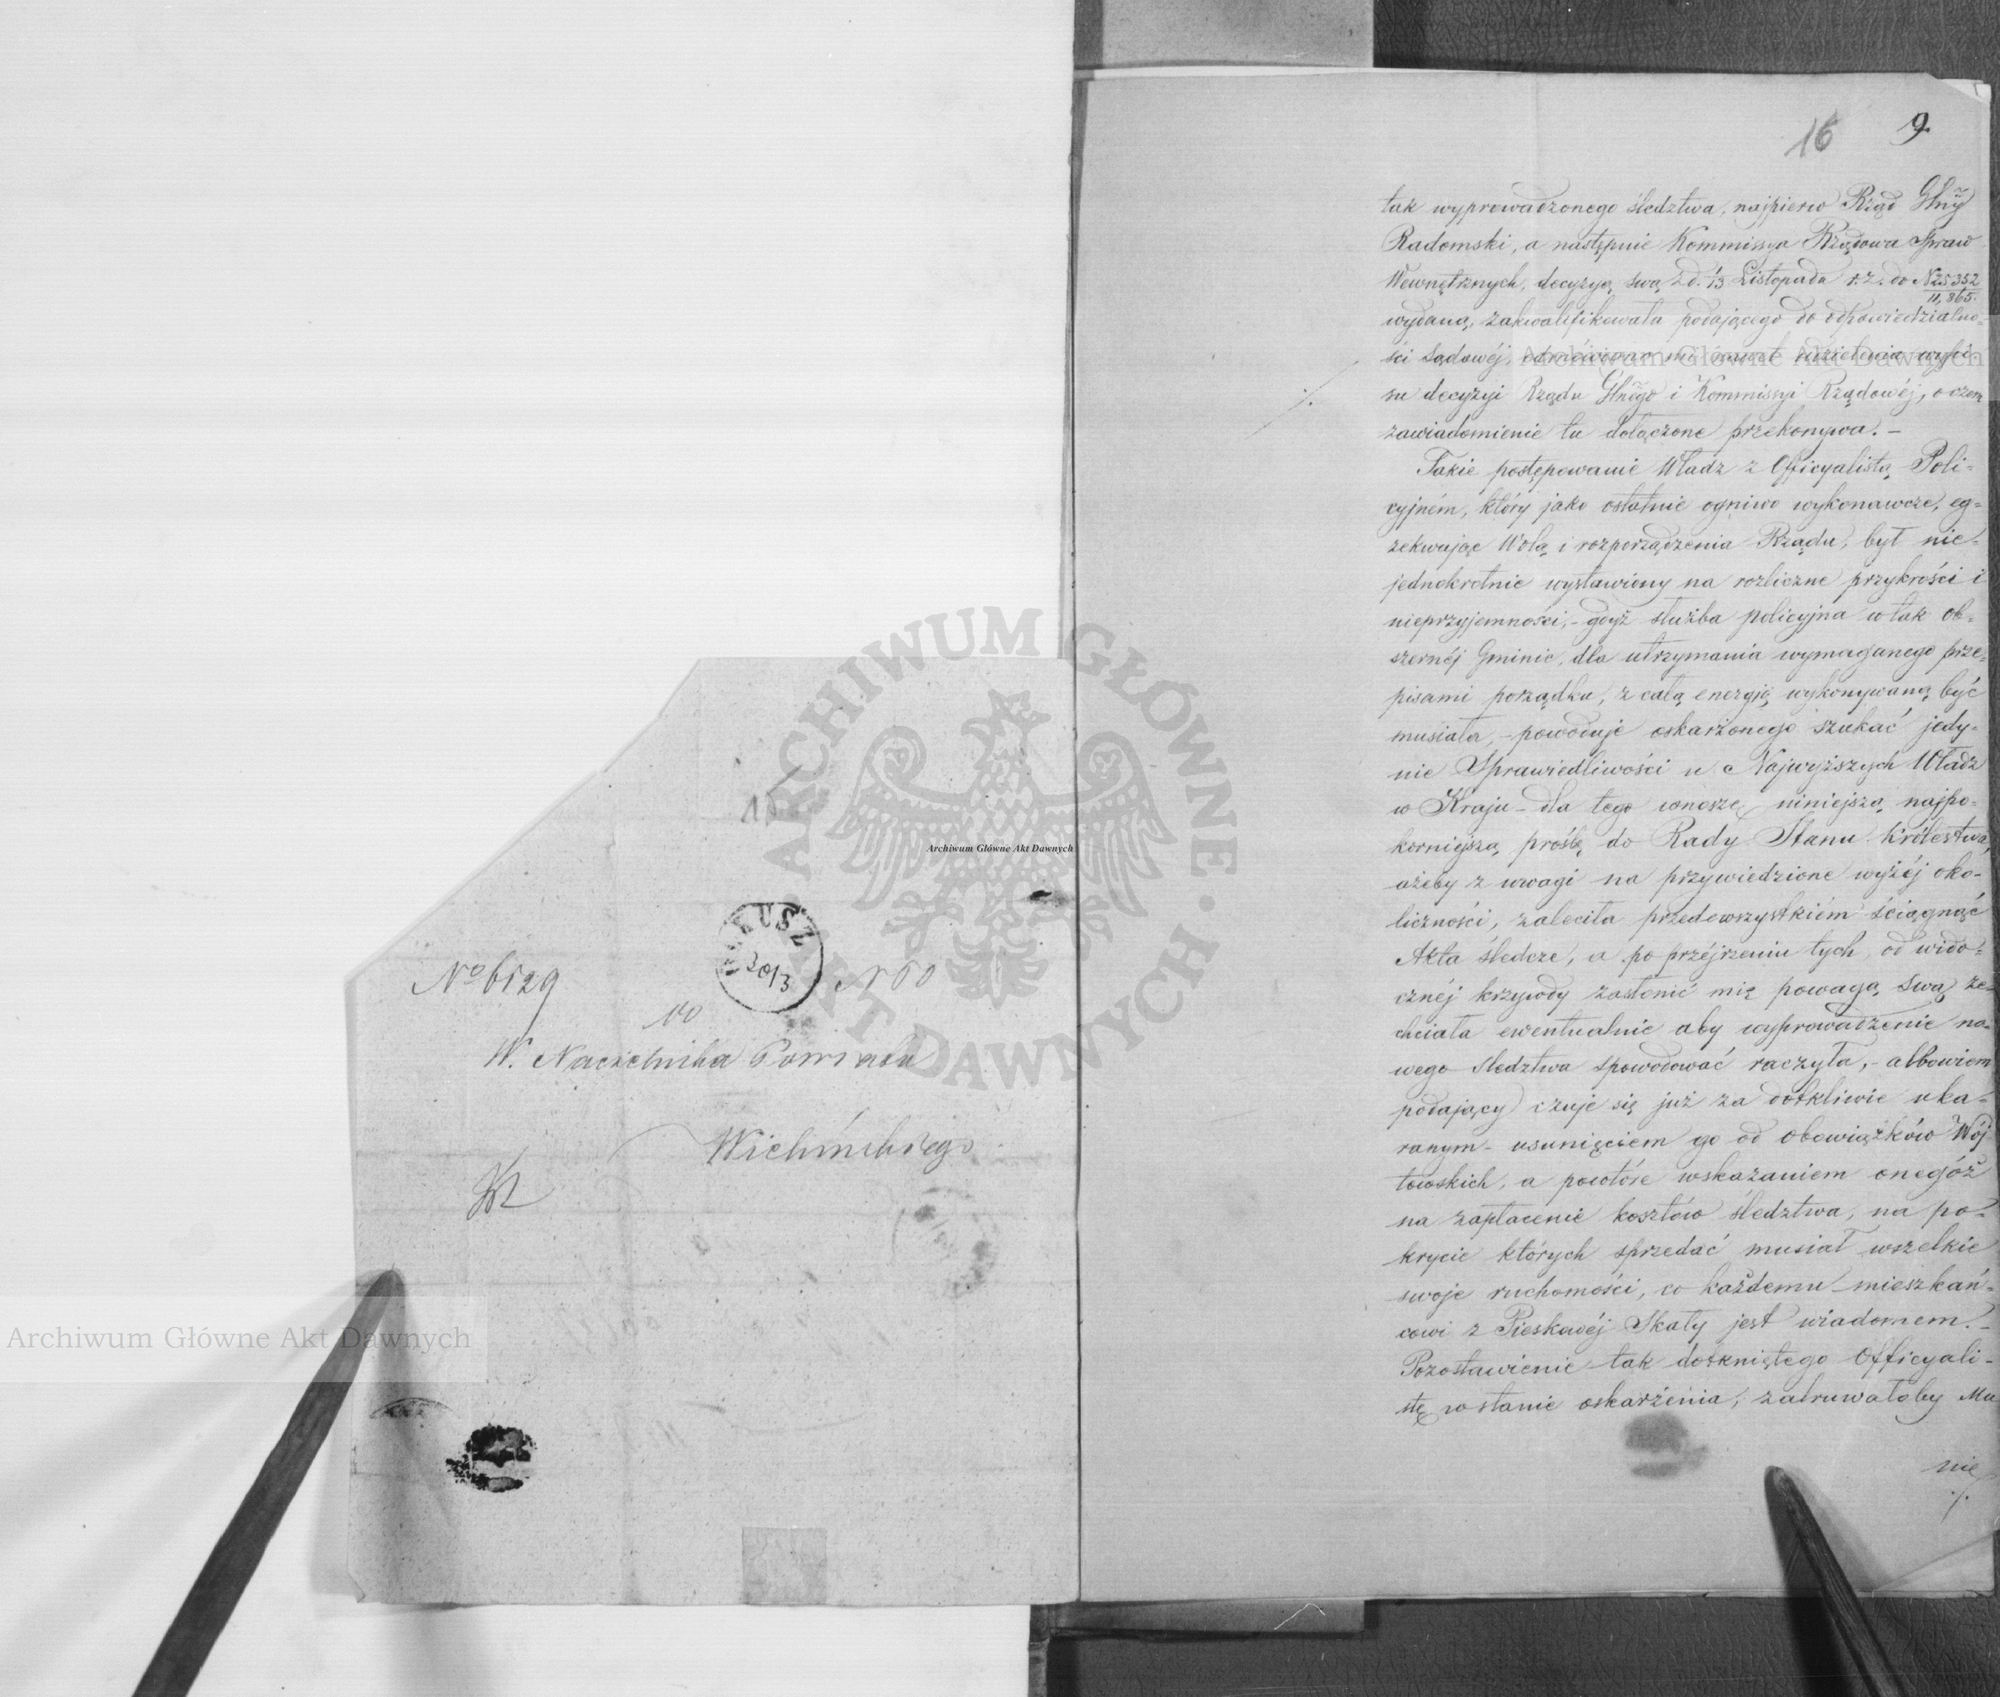 15
OLKUSZ
20/3
No 6529
No
W. Naczelnika Powiatu
Wieluńskiego
16 9.
tak wyprowadzonego śledztwa, najpierw Rząd Glny
Radomski, a następnie Kommissya Rządowa Spraw
Wewnętrznych, decyzyą swą z d. 1/13 Listopada r. z. do N 25352/11,865.
wydaną, zakwalifikowała podającego do odpowiedzialno-
ści Sądowéj, odmówiono mi nawet udzielenia wypi-
su decyzyi Rządu Glnego i Kommissyi Rządowéj, o czem
zawiadomienie tu dołączone przekonywa. –
Takie postępowanie Władz z Officyalistą Poli-
cyjném, który jako ostatnie ogniwo wykonawcze, eg-
zekwując Wolą i rozporządzenia Rządu, był nie-
jednokrotnie wystawiony na rozliczne przykrości i
nieprzyjemności, – gdyż służba policyjna w tak ob-
szernéj Gminie, dla utrzymania wymaganego prze-
pisami porządku, z całą energją wykonywaną być
musiała, – powoduje oskarżonego szukać jedy-
nie Sprawiedliwości u Najwyższych Władz
w Kraju – dla tego wnoszę niniejszą najpo-
korniejszą prośbę do Rady Stanu Królestwa,
ażeby z uwagi na przywiedzione wyżéj oko-
liczności, zaleciła przedewszystkiém ściągnąć
Akta śledcze, a po przéjrzeniu tych, od wido-
cznéj krzywdy zasłonić mię powagą swą ze-
chciała ewentualnie aby wyprowadzenie no-
wego śledztwa spowodować raczyła, – albowiem
podający czuje się już za dotkliwie uka-
ranym – usunięciem go od obowiązków Wój-
towskich, a powtóre wskazaniem onegóż
na zapłacenie kosztów śledztwa, na po-
krycie których sprzedać musiał wszelkie
swoje ruchomości, co każdemu mieszkań-
cowi z Pieskowéj Skały jest wiadomem. –
Pozostawienie tak dotkniętego Officyali-
stę w stanie oskarżenia, zatruwałoby Mu
nie
./.
ARCHIWUM GŁÓWNE AKT DAWNYCH
Archiwum Główne Akt Dawnych
Archiwum Główne Akt Dawnych
Archiwum Główne Akt Dawnych